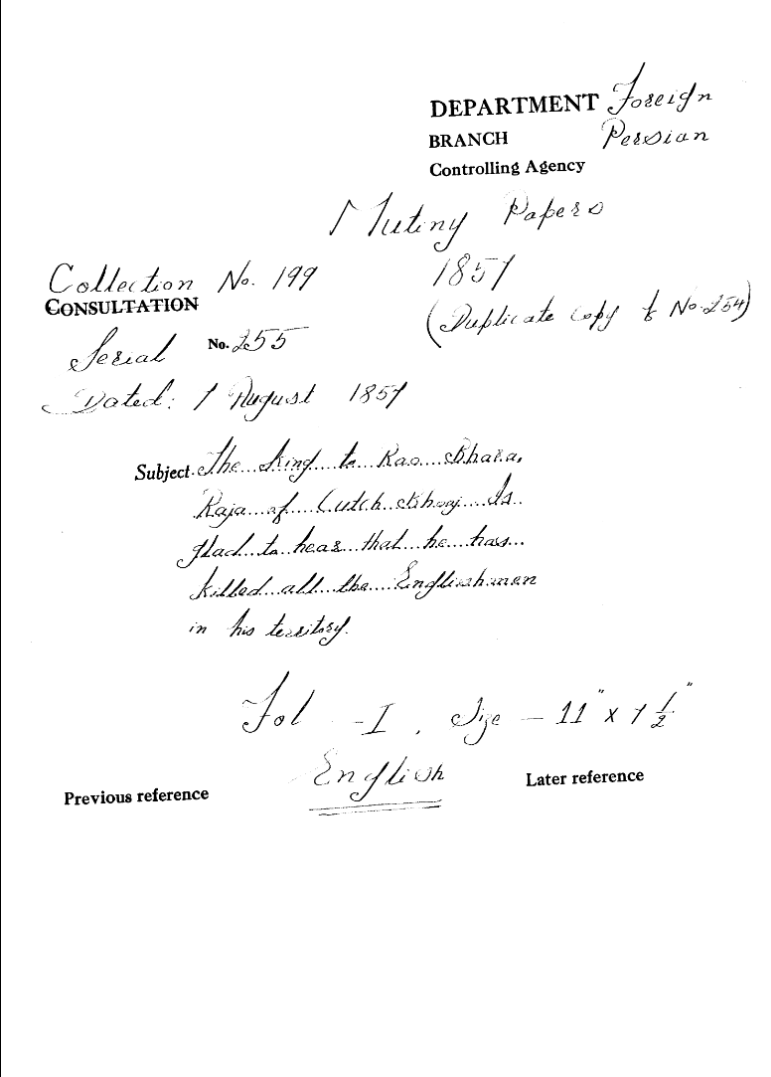 DEPARTMENT Foreign
BRANCH Persian
Controlling Agency
Mutiny Papers
Collection No. 199 1857
CONSULTATION (Duplicate copy of No. 254)
Serial No. 255
Dated: 7 August 1857
Subject. The King to Rao Bhara,
Raja of Cutch Bhooj. Is
glad to hear that he has
killed all the Englishmen
in his territory.
Fol - I . Size - 11" x 7 1/2"
English
Previous reference Later reference